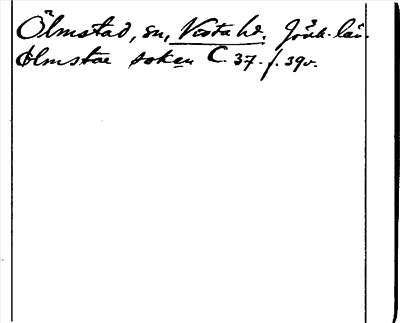 Ölmstad, sn, Vista hd. Jönk. län.
Olmstæ sokæn C. 37. f. 39v.